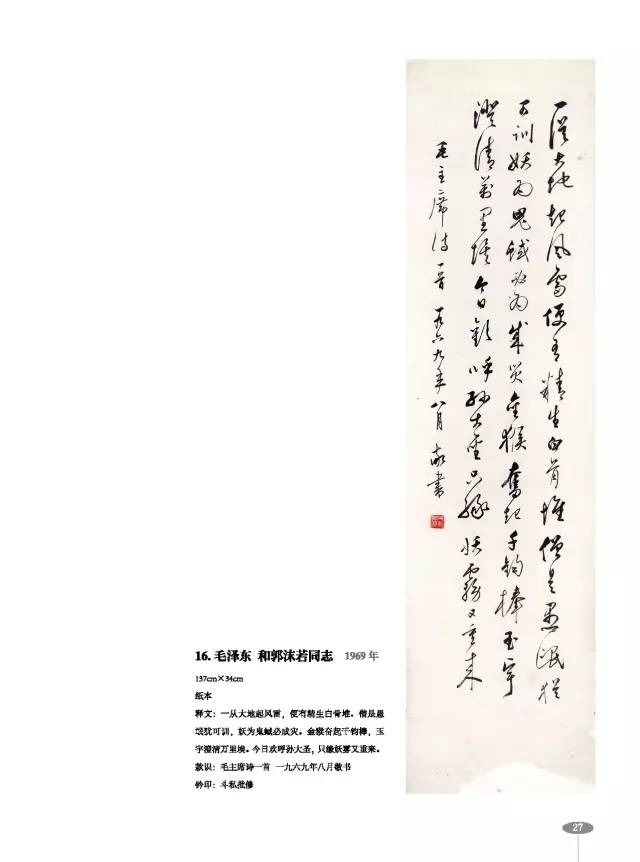 一從大地起風雷便有精生白骨堆僧是愚氓猶
可訓妖為鬼蜮必為成災金猴奮起千鈞棒玉宇
澄清萬里埃今日歡呼孫大聖只緣妖霧又重來
毛主席诗一首 一九六九年八月 敬書
16. 毛泽东 和郭沫若同志 1969 年
137cm×34cm
纸本
释文：一从大地起风雷，便有精生白骨堆。僧是愚
氓犹可训，妖为鬼蜮必成灾。金猴奋起千钧棒，玉
宇澄清万里埃。今日欢呼孙大圣，只缘妖雾又重来。
款识：毛主席诗一首 一九六九年八月敬书
钤印：斗私批修
27